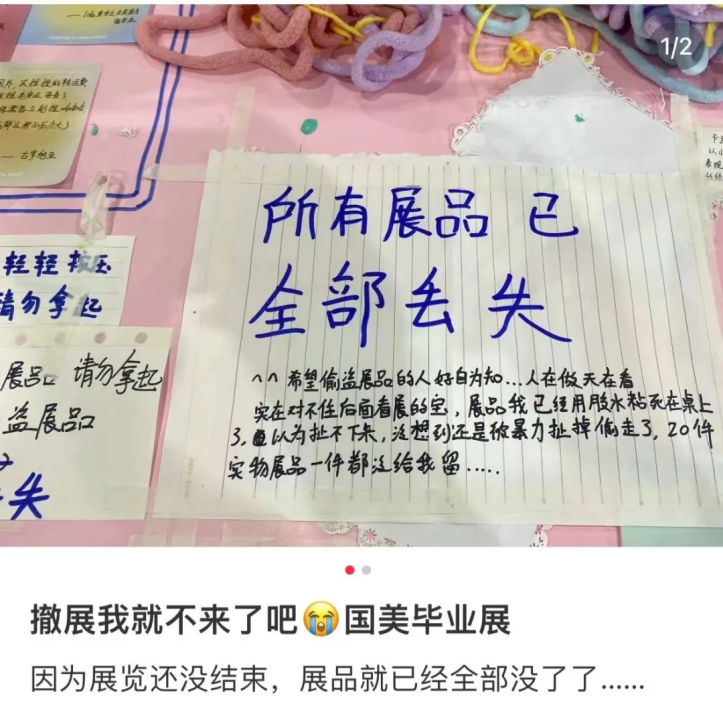 1/2
古罗枸亚
轻轻按压
请勿拿起
展品 请勿拿起
盗展品
失
所有展品已
全部丢失
^^希望偷盗展品的人好自为知...人在做天在看
实在对不住后面看展的宝,展品我已经用胶水粘死在桌上
了,以为扯不下来,没想到还是被暴力扯掉偷走了,20件
实物展品一件都没给我留.....
撤展我就不来了吧😭国美毕业展
因为展览还没结束,展品就已经全部没了了......